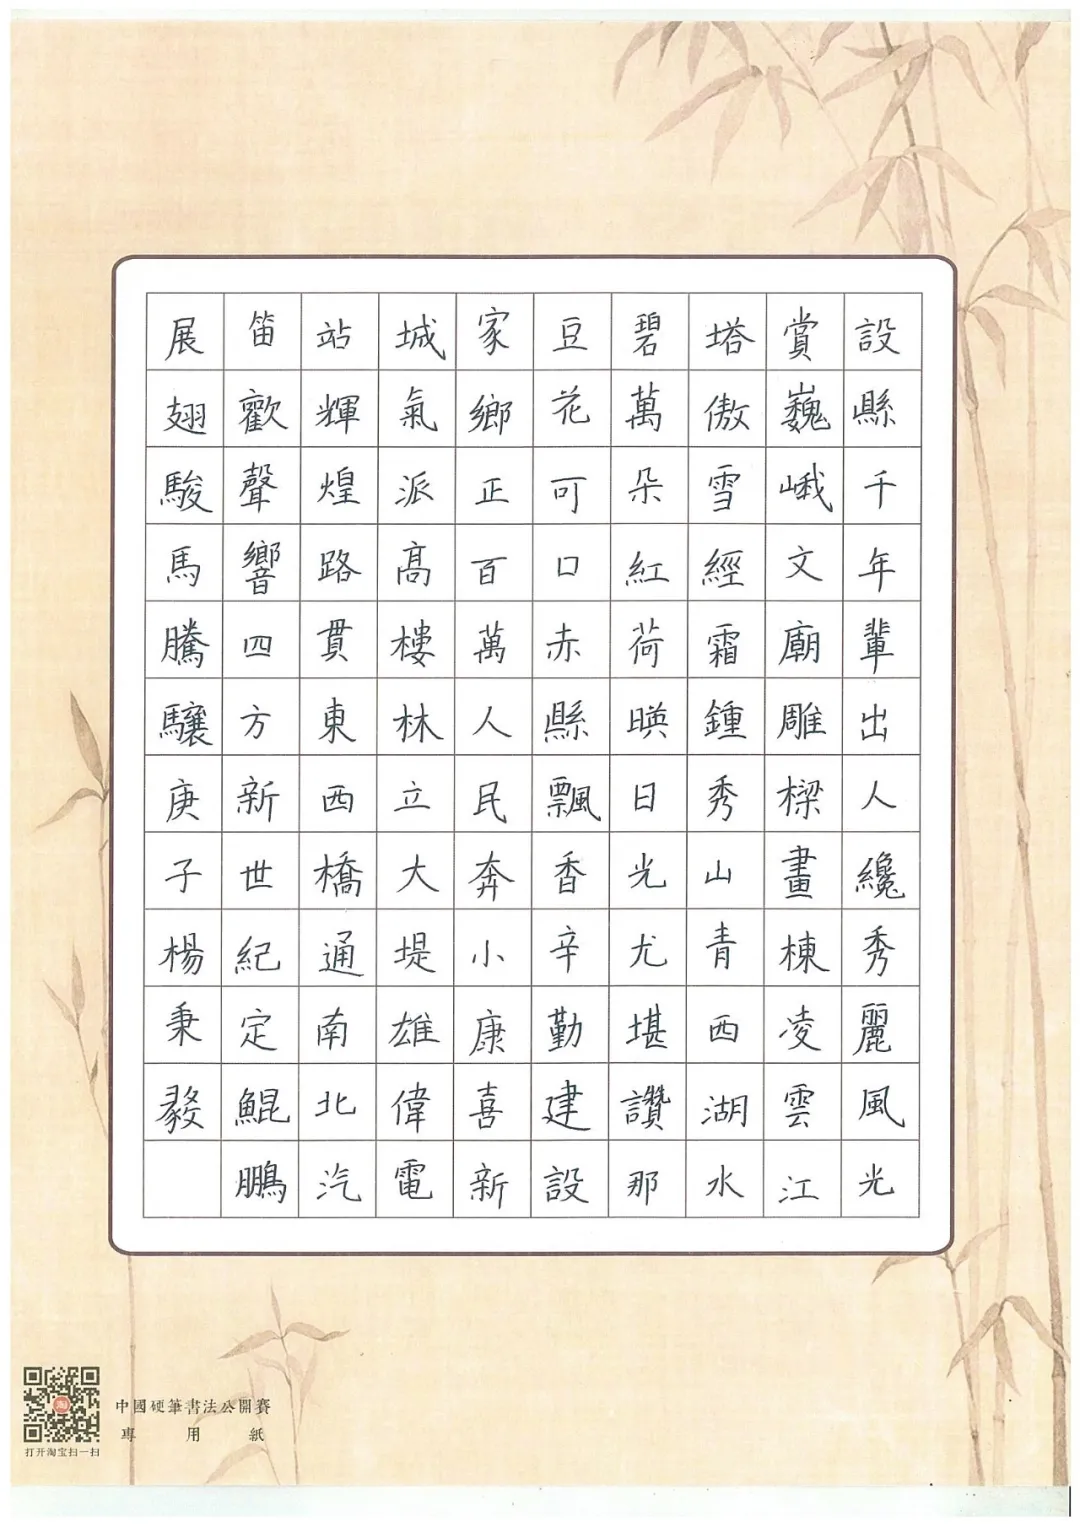 設縣千年輩出人纔秀麗風光
賞巍峨文廟雕樑畫棟凌雲江
塔傲雪經霜鍾秀山青西湖水
碧萬朵紅荷暎日光尤堪讚那
豆花可口赤縣飄香辛勤建設
家鄉正百萬人民奔小康喜新
城氣派高樓林立大堤雄偉電
站輝煌路貫東西橋通南北汽
笛歡聲響四方新世紀定鯤鵬
展翅駿馬騰驤庚子楊秉
中國硬筆書法公開賽
專用紙
淘
打开淘宝扫一扫